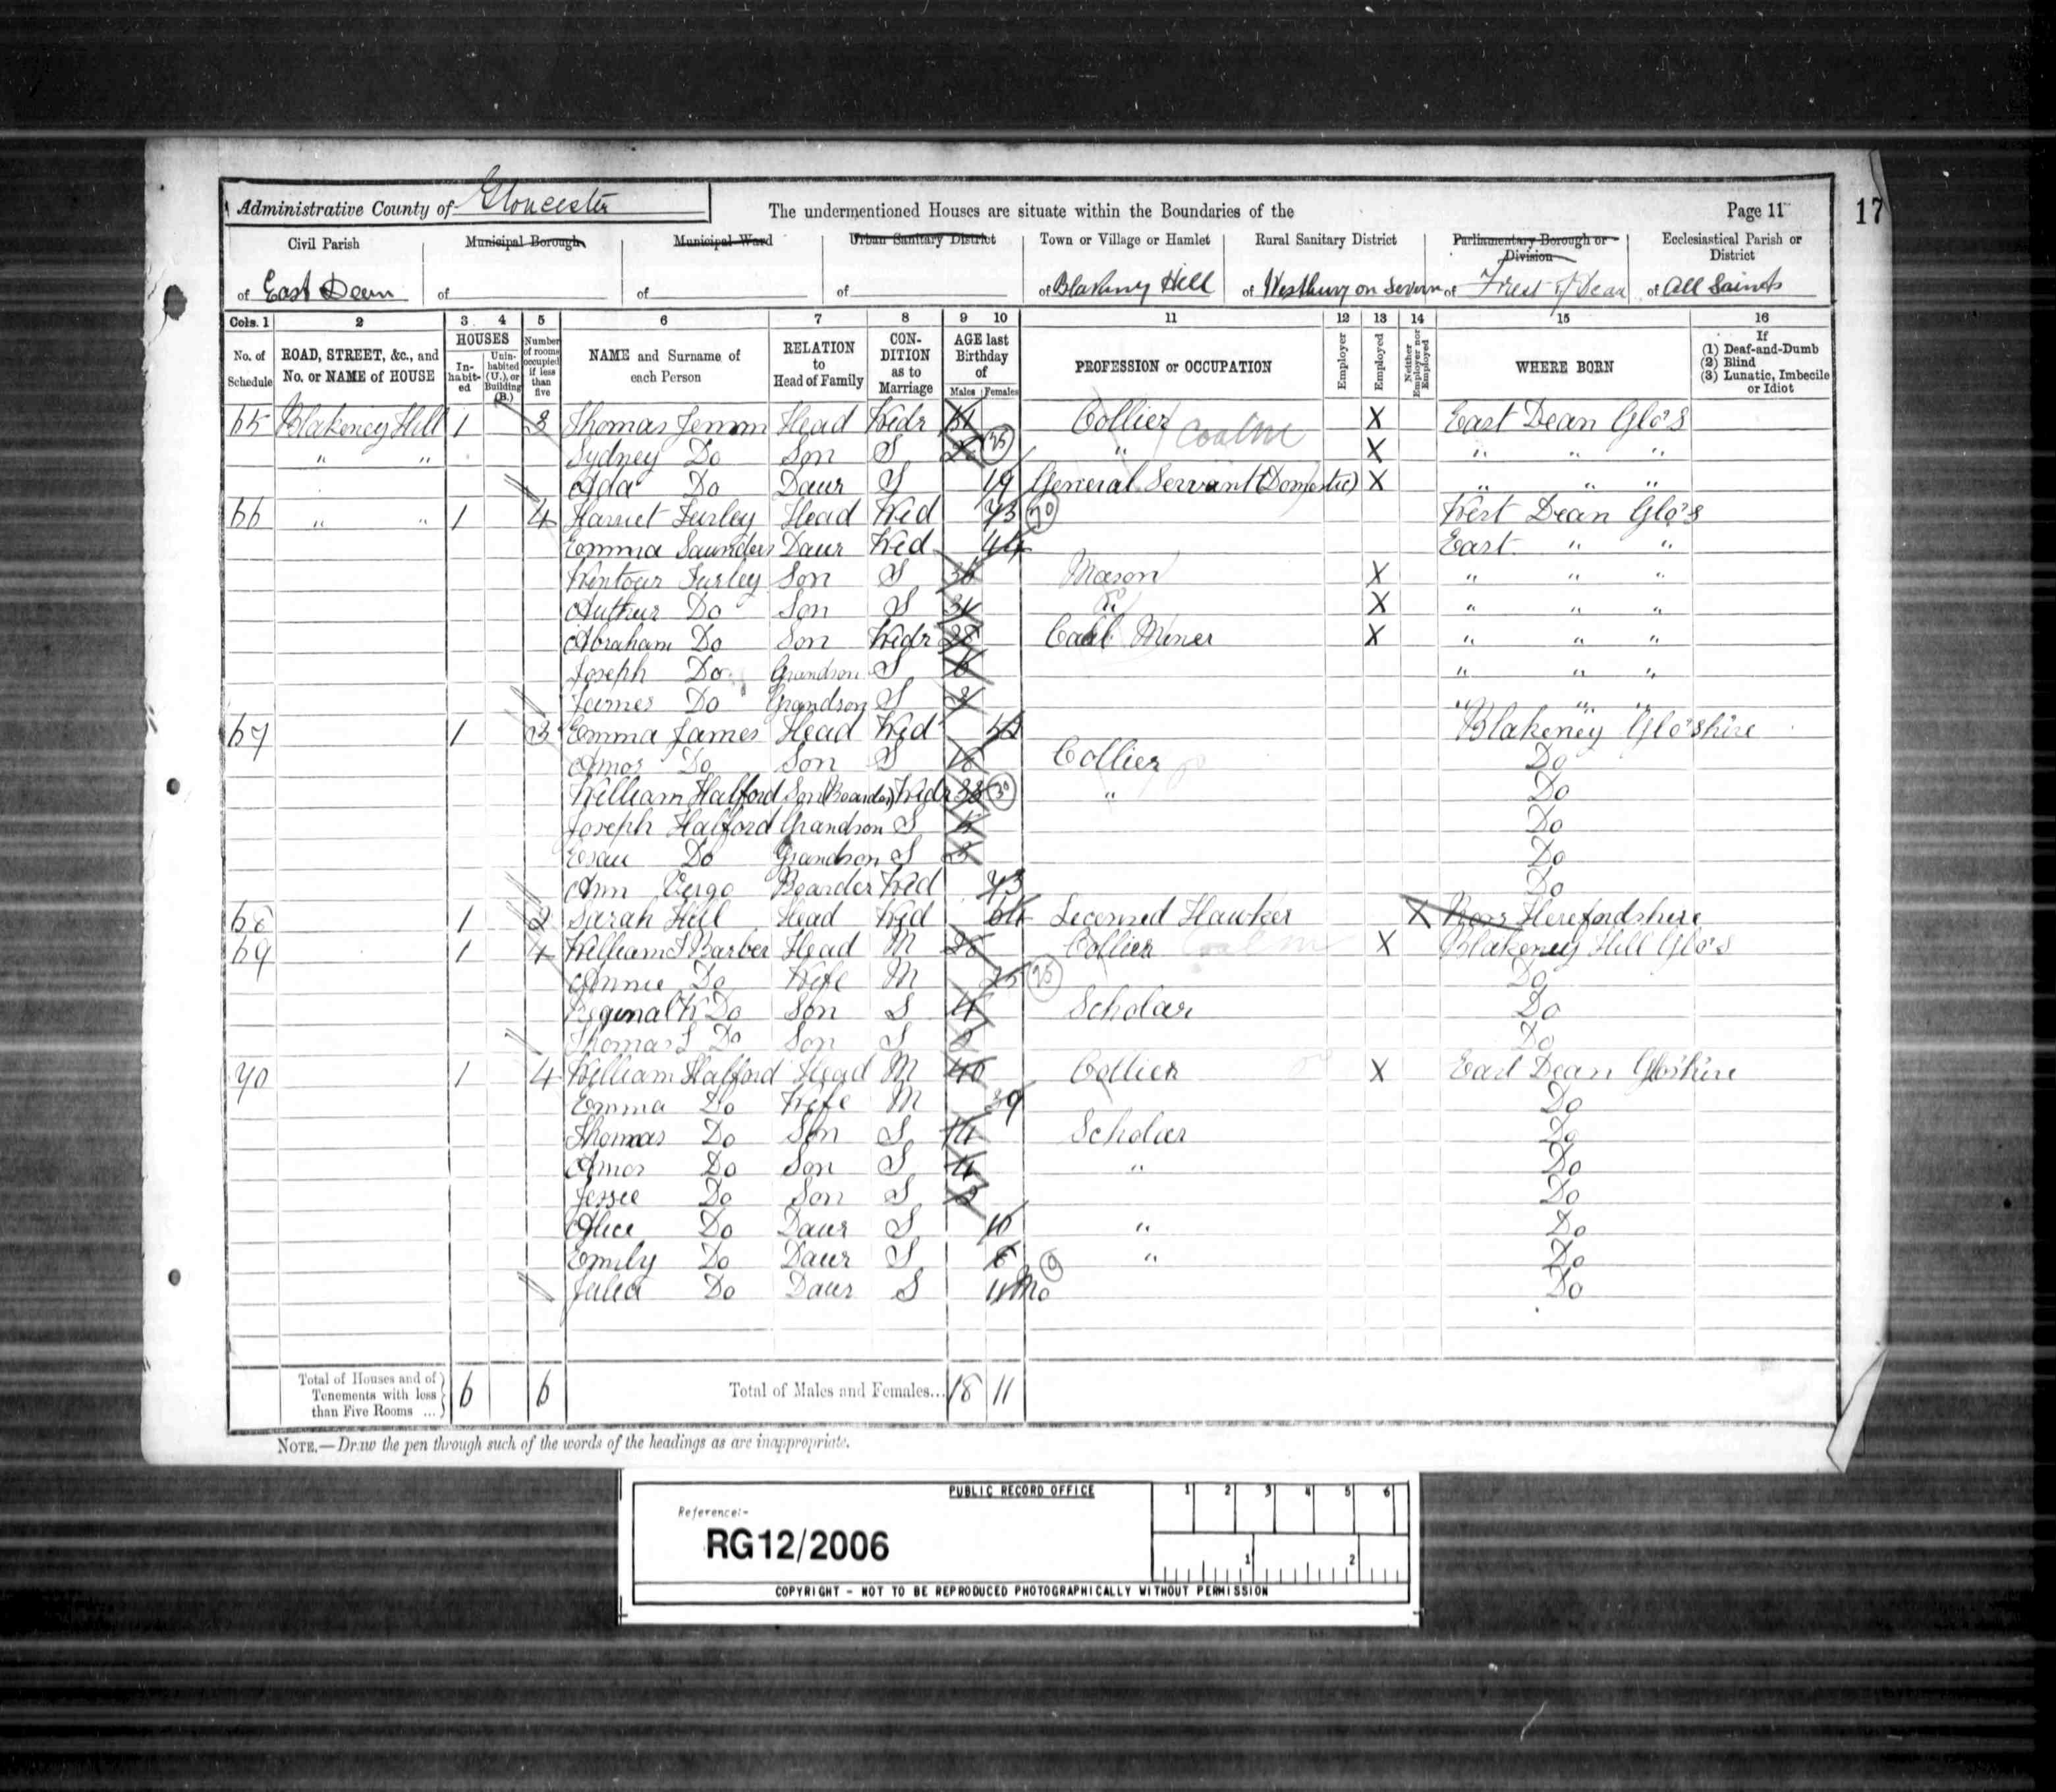 Administrative County of Gloucester The undermentioned Houses are situate within the Boundaries of the Page 11 17
Civil Parish Municipal Borough Municipal Ward Urban Sanitary District Town or Village or Hamlet Rural Sanitary District Parliamentary Borough or Division Ecclesiastical Parish or District
of East Dean of of of of Blakeney Hill of Westbury on Severn of Forest of Dean of All Saints
Cols. 1 2 3 4 5 6 7 8 9 10 11 12 13 14 15 16
No. of Schedule ROAD, STREET, &c., and No. or NAME of HOUSE HOUSES In-habit-ed Unin-habited (U.), or Building (B.) Number of rooms occupied if less than five NAME and Surname of each Person RELATION to Head of Family CON-DITION as to Marriage AGE last Birthday of Males Females PROFESSION or OCCUPATION Employer Employed Neither Employer nor Employed WHERE BORN If (1) Deaf-and-Dumb (2) Blind (3) Lunatic, Imbecile or Idiot
65 Blakeney Hill 1 3 Thomas Head Widr Collier X East Dean Glo's
" " Sydney Do Son S (25) " X " " "
Ada Do Daur S 19 General Servant (Domestic) X " " "
66 " " 1 4 Harriet Furley Head Wid 73 (70) West Dean Glo's
Emma Saunders Daur Wid 44 East " "
Wintour Furley Son S 36 Mason X " " "
Arthur Do Son S 31 Do X " " "
Abraham Do Son Widr 38 Coal Miner X " " "
Joseph Do Grandson S 6 " " "
James Do Grandson S " " "
67 1 3 Emma James Head Wid Blakeney Glo'shire
Amos Do Son S 18 Collier Do
William Halford Son (Boarder) Widr 33 (30) " Do
Joseph Halford Grandson S Do
Esau Do Grandson S 3 Do
Ann Boarder Wid 73 Do
68 1 2 Sarah Hill Head Wid 64 Licensed Hawker X Ross Herefordshire
69 1 4 William J Barber Head M 28 Collier X Blakeney Hill Glo's
Annie Do Wife M 25 (25) Do
Reginal W Do Son S 4 Scholar Do
Thomas S Do Son S 2 Do
70 1 4 William Halford Head M 40 Collier X East Dean Glo'shire
Emma Do Wife M 39 Do
Thomas Do Son S Scholar Do
Amos Do Son S 4 " Do
Jessee Do Son S Do
Alice Do Daur S 10 " Do
Emily Do Daur S 6 " Do
Julia Do Daur S 11 Mo (0) Do
Total of Houses and of Tenements with less than Five Rooms ... 6 6 Total of Males and Females... 18 11
NOTE.—Draw the pen through such of the words of the headings as are inappropriate.
PUBLIC RECORD OFFICE 1 2 3 4 5 6
Reference:-
RG12/2006
1 2
COPYRIGHT - NOT TO BE REPRODUCED PHOTOGRAPHICALLY WITHOUT PERMISSION